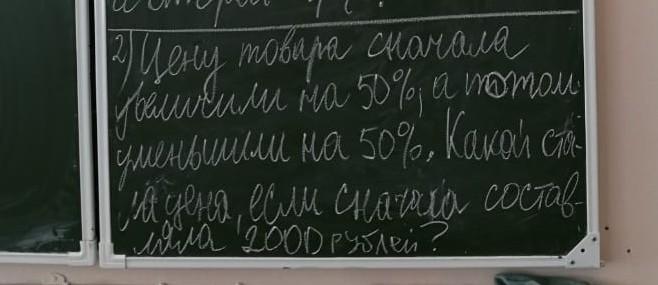 2) Цену товара сначала
увеличили на 50%, а потом
уменьшили на 50%. Какой ста-
ла цена, если сначала состав-
ляла 2000 рублей?